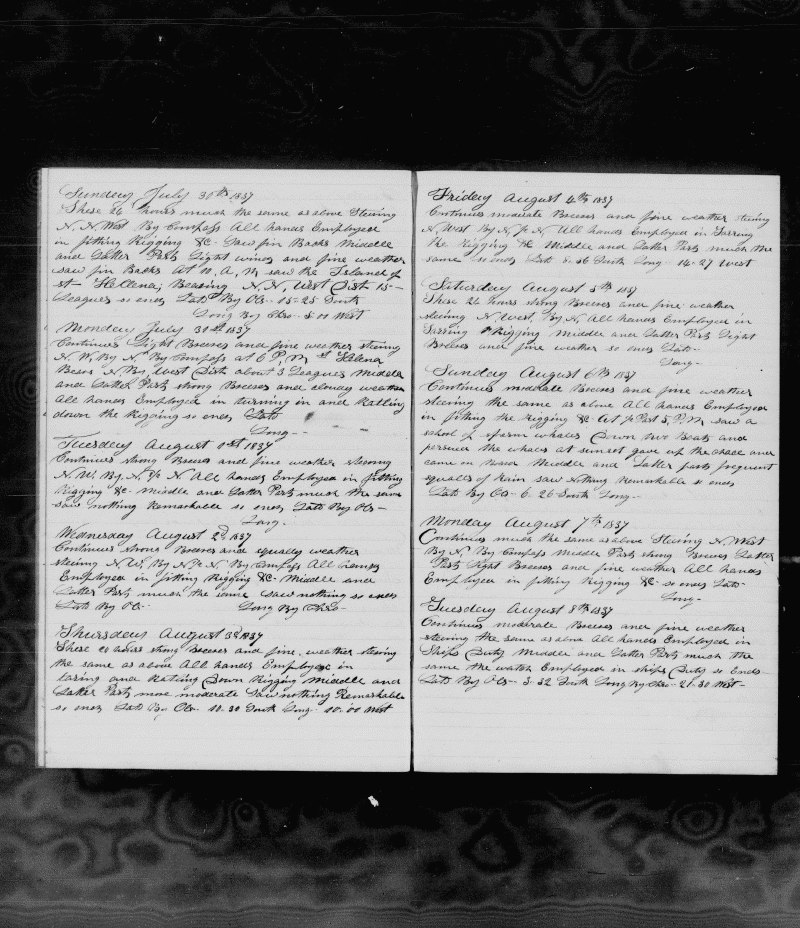 Sunday July 30th 1837
These 24 hours much the same as above Steering
N. N. West By Compass All hands Employed
in fitting Rigging &c- Saw fin Backs Middle
and Latter Parts Light winds and fine weather
saw fin Backs At 10, A, M saw the Island of
st- Hellena; Bearing N. N, West Dist 15-
Leagues so ends Latd By Obs- 15-25 South
Long By Chro- 5.00 West
Monday July 31st 1837
Continues Light Breezes and fine weather steering
N. W. By N. By Compass at 6 P, M st Helena
Bears N By West Dist about 3 Leagues Middle
and Latter Parts strong Breezes and cloudy weather
All hands Employed in turning in and Ratling
down the Rigging so ends Latd
Long--
Tuesday August 1st 1837
Continues strong Breezes and fine weather steering
N. W. By. N. ½ N All hands Employed in fitting
Rigging &c- Middle and Latter Parts much the same
Saw nothing Remarkable so ends Latd By Obs-
Long.
Wednesday August 2d 1837
Continues strong Breezes and squally weather
steering N. W, By N. ½ N. By Compass All hands
Employed in fitting Rigging &c- Middle and
Latter Parts much the same saw nothing so ends
Latd By Obs- Long By Chro-
Thursday August 3d 1837
These 24 hours strong Breezes and fine weather steering
the same as above All hands Employed in
and Ratling Down Rigging Middle and
Latter Parts more moderate Saw nothing Remarkable
so ends Latd By Obs- 10.30 South Long- 10.00 West
Friday August 4th 1837
Continues moderate Breezes and fine weather steering
N, West By N, ½ N, All hands Employed in Tarring
the Rigging &c Middle and Latter Parts much the
same so ends Latd 8-56 South Long- 14-27 West
Saturday August 5th 1837
These 24 hours strong Breezes and fine weather
steering N, West, By N, All hands Employed in
Tarring Rigging Middle and Latter Parts Light
Breezes and fine weather so ends Latd-
Long-
Sunday August 6th 1837
Continues moderate Breezes and fine weather
steering the same as above All hands Employed
in fitting the Rigging &c- At ½ Past 5, P, M saw a
school of sperm whales Down two Boats and
persued the whales at sunset gave up the chase and
came on Board Middle and Latter parts frequent
squalls of Rain saw Nothing Remarkable so ends
Latd By Obs- 6-26 South Long-
Monday August 7th 1837
Continues much the same as above Steering N, West
By N. By Compass Middle Parts strong Breezes Latter
Parts Light Breezes and fine weather All hands
Employed in fitting Rigging &c- so ends Latd-
Long-
Tuesday August 8th 1837
Continues moderate Breezes and fine weather
steering the same as above All hands Employed in
Ships Duty Middle and Latter Parts much the
same the watch Employed in ships Duty so Ends-
Latd By Obs- 3-32 South Long By Chro-- 21-30 West-